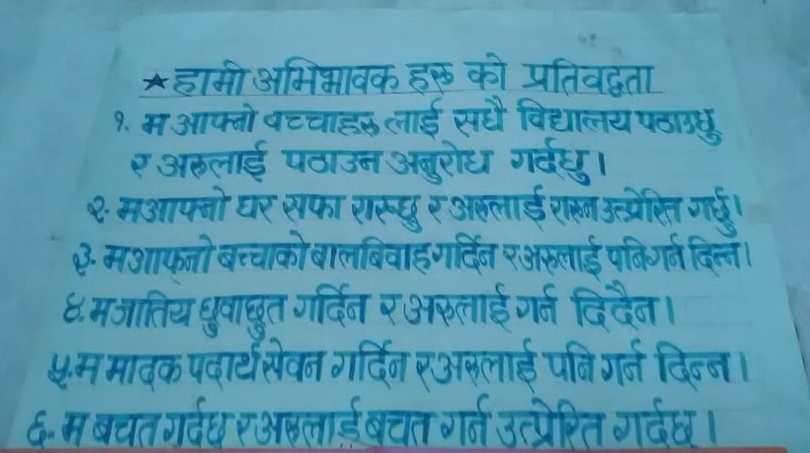 ★ हामी अभिभावक हरू को प्रतिवद्वता
१. म आफ्नो बच्चाहरू लाई सधै विद्यालय पठाउछु
र अरूलाई पठाउन अनुरोध गर्दछु।
२. म आफ्नो घर सफा राख्छु र अरूलाई राख्न उत्प्रेरित गर्छु।
३. म आफ्नो बच्चाको बालबिवाह गर्दिन र अरूलाई पनि गर्न दिन्न।
४. म जातिय छुवाछुत गर्दिन र अरूलाई गर्न दिदैन।
५. म मादक पदार्थ सेवन गर्दिन र अरूलाई पनि गर्न दिन्न।
६. म बचत गर्दछु र अरूलाई बचत गर्न उत्प्रेरित गर्दछु।